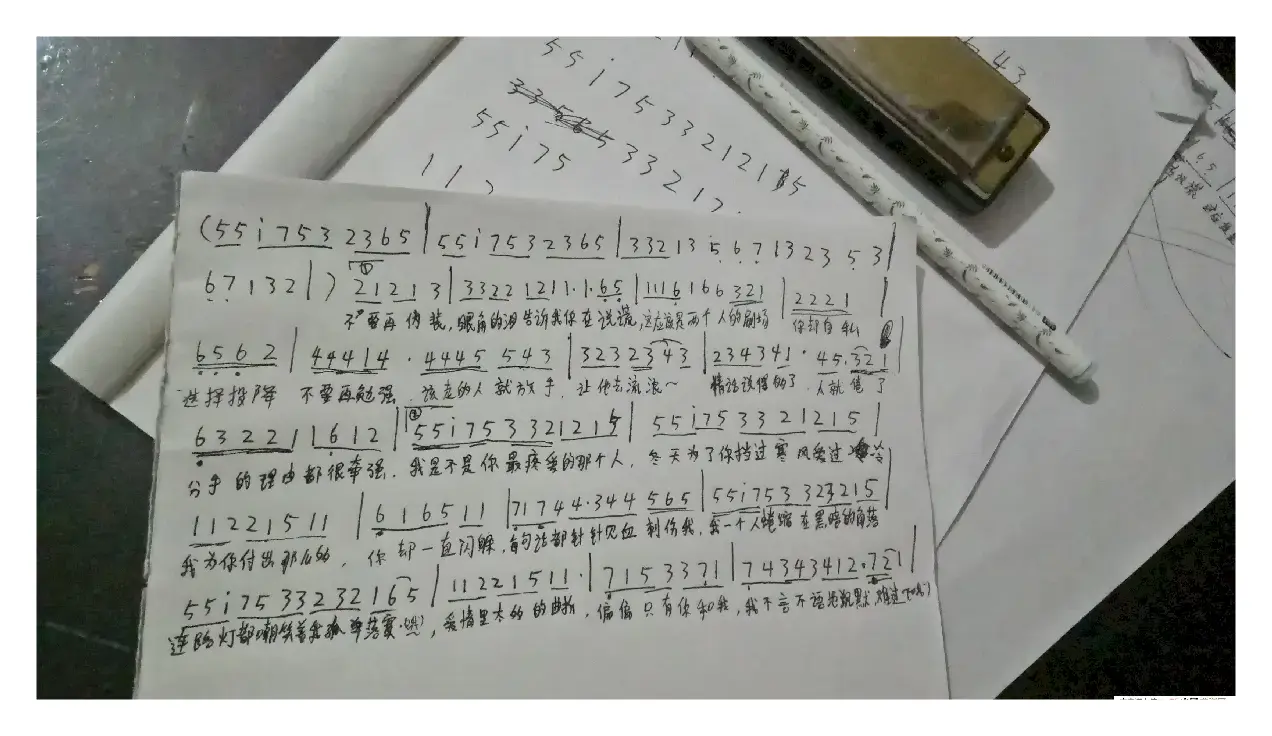 55i7533212155
55i75 33212
112
43
45
(55i7532365|55i7532365|33213567132353|
67132|)①21213|33221211·1·65|1116166321|2221|
不要再伪装,眼角的泪告诉我你在说谎,这应该是两个人的剧场 你却自私
6562|44414·4445 543|3232343|234341·45·321|
选择投降 不要再勉强,该走的人就放手,让他去流浪~ 情话说得够了,人就倦了
632211612|②55i753321215|55i753321215|
分手的理由都很牵强.我是不是你最疼爱的那个人,冬天为了你挡过寒风受过冷
11221511|616511|71744·344565|55i753323215|
我为你付出那么多,你却一直闪躲,每句话都针针见血刺伤我,我一个人蜷缩在黑暗的角落
55i7533232165|11221511·|7153371|74343412·721|
连路灯都嘲笑着我孤单落寞,爱情里的曲折,偏偏只有你和我,我不言不语沉默难过